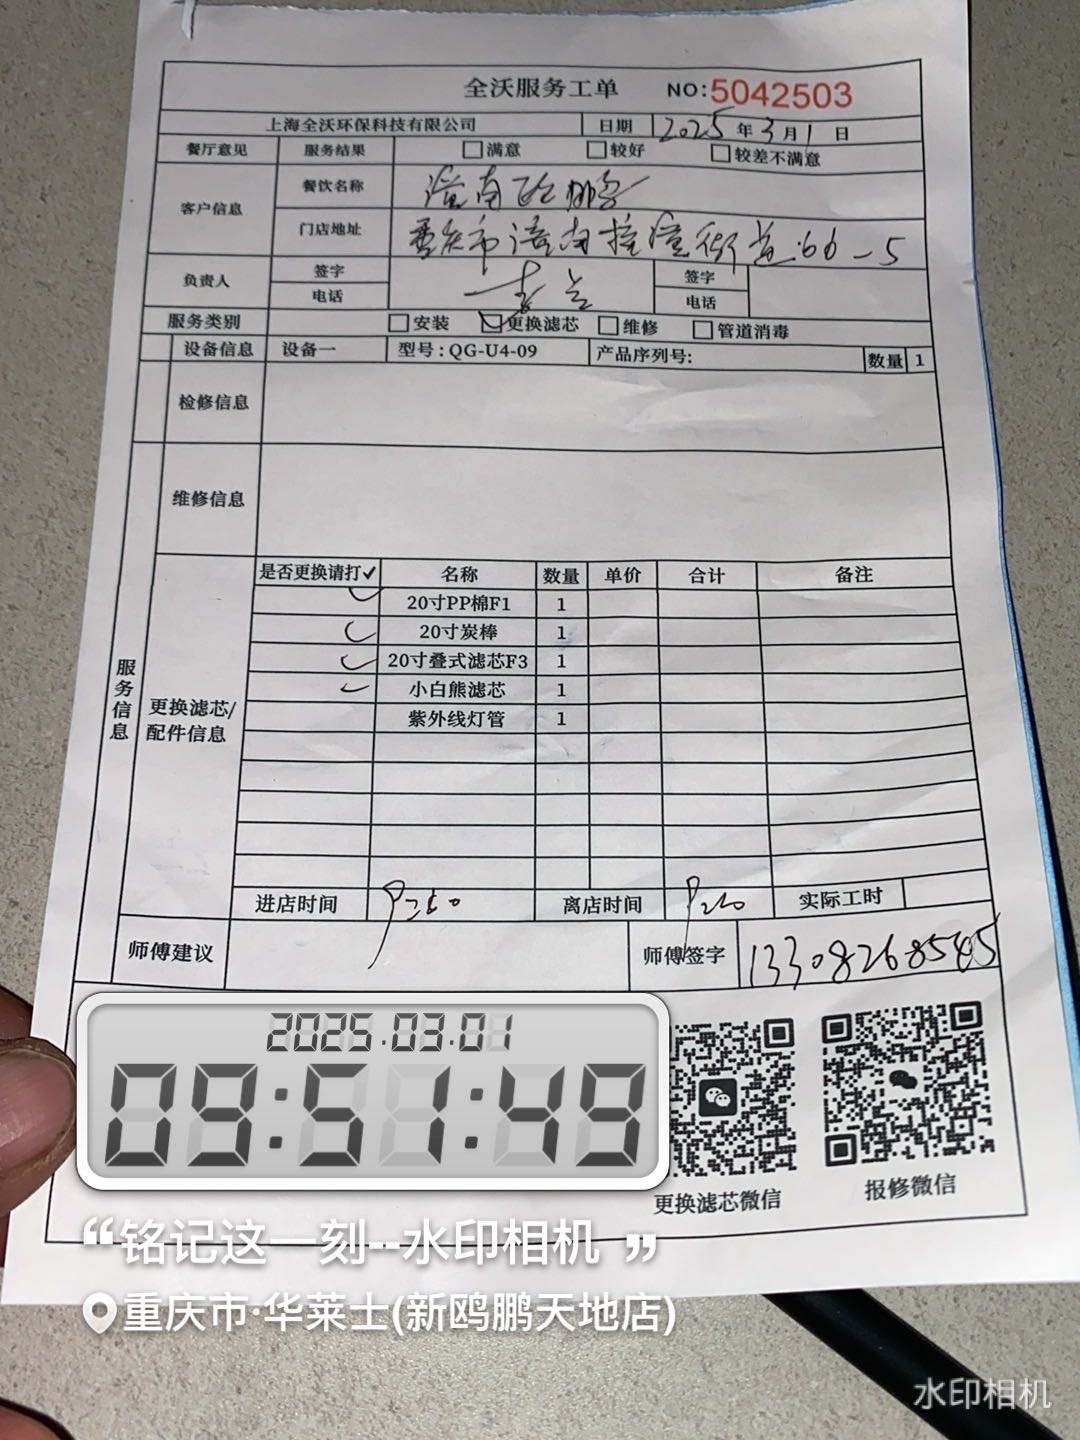 全沃服务工单 NO:5042503
上海全沃环保科技有限公司 日期 2025年3月1日
餐厅意见 服务结果 满意 较好 较差不满意
客户信息 餐饮名称 潼南欧鹏
门店地址 重庆市潼南 街道66-5
负责人 签字 李兰 签字
电话 电话
服务类别 安装 更换滤芯 维修 管道消毒
设备信息 设备一 型号:QG-U4-09 产品序列号: 数量 1
检修信息
维修信息
服务信息
更换滤芯/配件信息
是否更换请打✓ 名称 数量 单价 合计 备注
✓ 20寸PP棉F1 1
✓ 20寸炭棒 1
✓ 20寸叠式滤芯F3 1
✓ 小白熊滤芯 1
紫外线灯管 1
进店时间 离店时间 实际工时
师傅建议 师傅签字 13308268545
更换滤芯微信 报修微信
2025.03.01
09:51:49
“铭记这一刻--水印相机 ”
重庆市·华莱士(新鸥鹏天地店)
水印相机